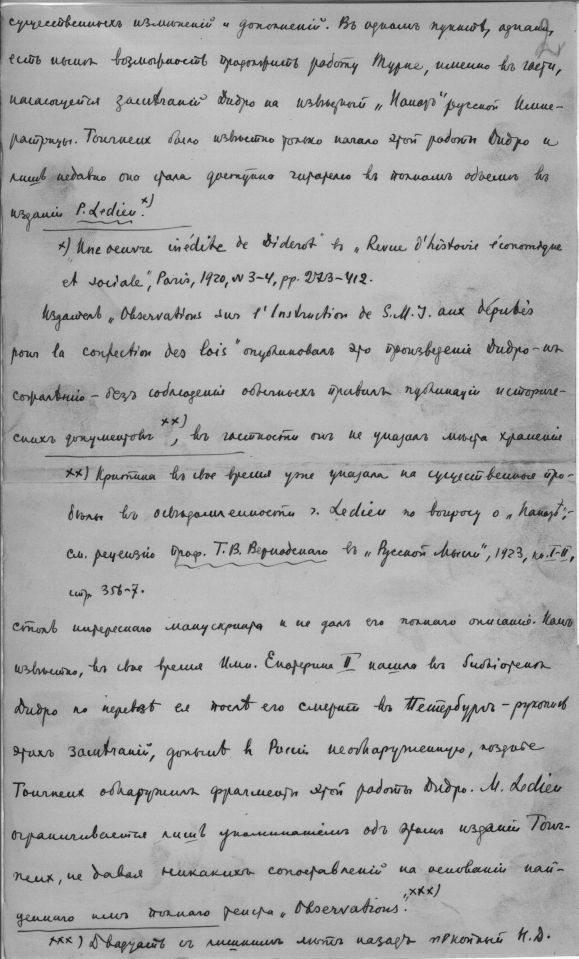 существенныхъ измѣненій и дополненій. Въ одномъ пунктѣ, однако,
есть нынѣ возможность продолжить работу Турнe, именно въ части,
касающейся замѣчаній Дидро на извѣстный „Наказъ“ русской Импе-
ратрицы. Tourneux было извѣстно только начало этой работы Дидро и
лишь недавно она стала доступна читателю въ полномъ объемѣ въ
изданіи P. Ledieu.x)
x) „Une oeuvre inédite de Diderot“ въ „Revue d'histoire économique
et sociale“, Paris, 1920, N 3-4, pp. 273-412.
Издатель „Observations sur l'Instruction de S.M.I. aux députés
pour la confection des lois“ опубликовалъ это произведеніе Дидро – къ
сожалѣнію – безъ соблюденія обычныхъ правилъ публикаціи историче-
скихъ документовъ xx), въ частности онъ не указалъ мѣста храненія
xx) Критика въ свое время уже указала на существенные про-
бѣлы въ освѣдомленности г. Ledieu по вопросу о „Наказѣ“, –
см. рецензію проф. Г.В. Вернадскаго въ „Русской Мысли“, 1923, кн. I-II,
стр. 356-7.
столь интереснаго манускрипта и не далъ его полнаго описанія. Какъ
извѣстно, въ свое время Имп. Екатерина II нашла въ библіотекѣ
Дидро по перевозѣ ея послѣ его смерти въ Петербургъ – рукопись
этихъ замѣчаній, донынѣ въ Россіи необнаруженную, позднѣе
Tourneux обнаружилъ фрагменты этой работы Дидро. M. Ledieu
ограничивается лишь упоминаніемъ объ этомъ изданіи Tour-
neux, не давая никакихъ сопоставленій на основаніи най-
деннаго имъ полнаго текста „Observations“. xxx)
xxx) Двадцать съ лишнимъ лѣтъ назадъ покойный Н.Д.